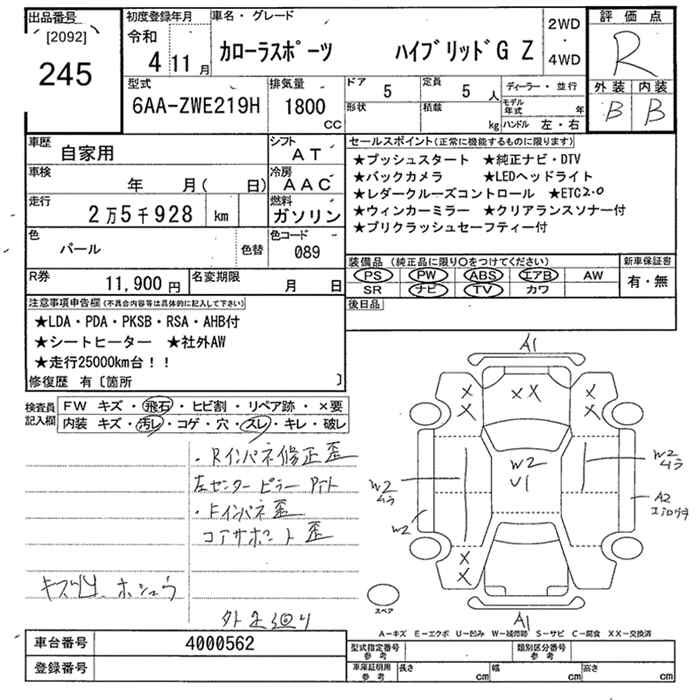 出品番号
[2092]
245
初度登録年月
令和 4年11月
車名・グレード
カローラスポーツ ハイブリッドG Z
2WD・4WD
評価点
R
外装 内装
B B
型式
6AA-ZWE219H
排気量
1800 CC
ドア
5
定員
5 人
形状
積載 kg
ディーラー・並行
モデル年式 年
ハンドル 左・右
車歴
自家用
シフト
AT
車検
年 月( 日)
冷房
AAC
走行
2万5千928 km
燃料
ガソリン
色
パール
色替
色コード
089
R券
11,900円
名変期限
月 日
セールスポイント(正常に機能するものに限ります)
★プッシュスタート ★純正ナビ・DTV
★バックカメラ ★LEDヘッドライト
★レダークルーズコントロール ★ETC2.0
★ウィンカーミラー ★クリアランスソナー付
★プリクラッシュセーフティー付
装備品 (純正品に限り○をつけてください)
PS PW ABS エアB AW
SR ナビ TV カワ
新車保証書
有・無
後日品
注意事項申告欄(不具合内容等は具体的に記入して下さい)
★LDA・PDA・PKSB・RSA・AHB付
★シートヒーター ★社外AW
★走行25000km台!!
修復歴 有〔箇所 〕
検査員記入欄
FW キズ・飛石・ヒビ割・リペア跡・×要
内装 キズ・汚レ・コゲ・穴・ズレ・キレ・破レ
・Rインパネ修正歪
左センターピラー
・Fインパネ歪
コアサポート歪
外 廻り
A1
X X
X X
W2
U1
W2
ムラ
W2
ムラ
A2
W2
A1
スペア
A－キズ E－エクボ U－凹み W－補修跡 S－サビ C－腐食 XX－交換済
車台番号
4000562
登録番号
型式指定番号 参考
類別区分番号 参考
車庫証明用 参考
長さ cm
幅 cm
高さ cm